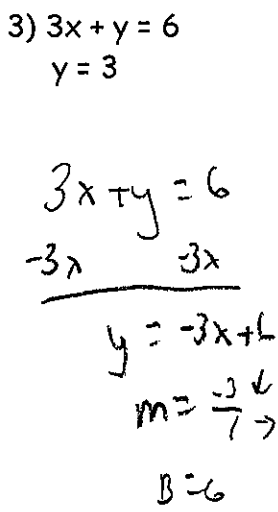 3) 3x + y = 6
y = 3
3x + y = 6
-3x -3x
y = -3x + 6
m = -3/1 ↓ →
B = 6